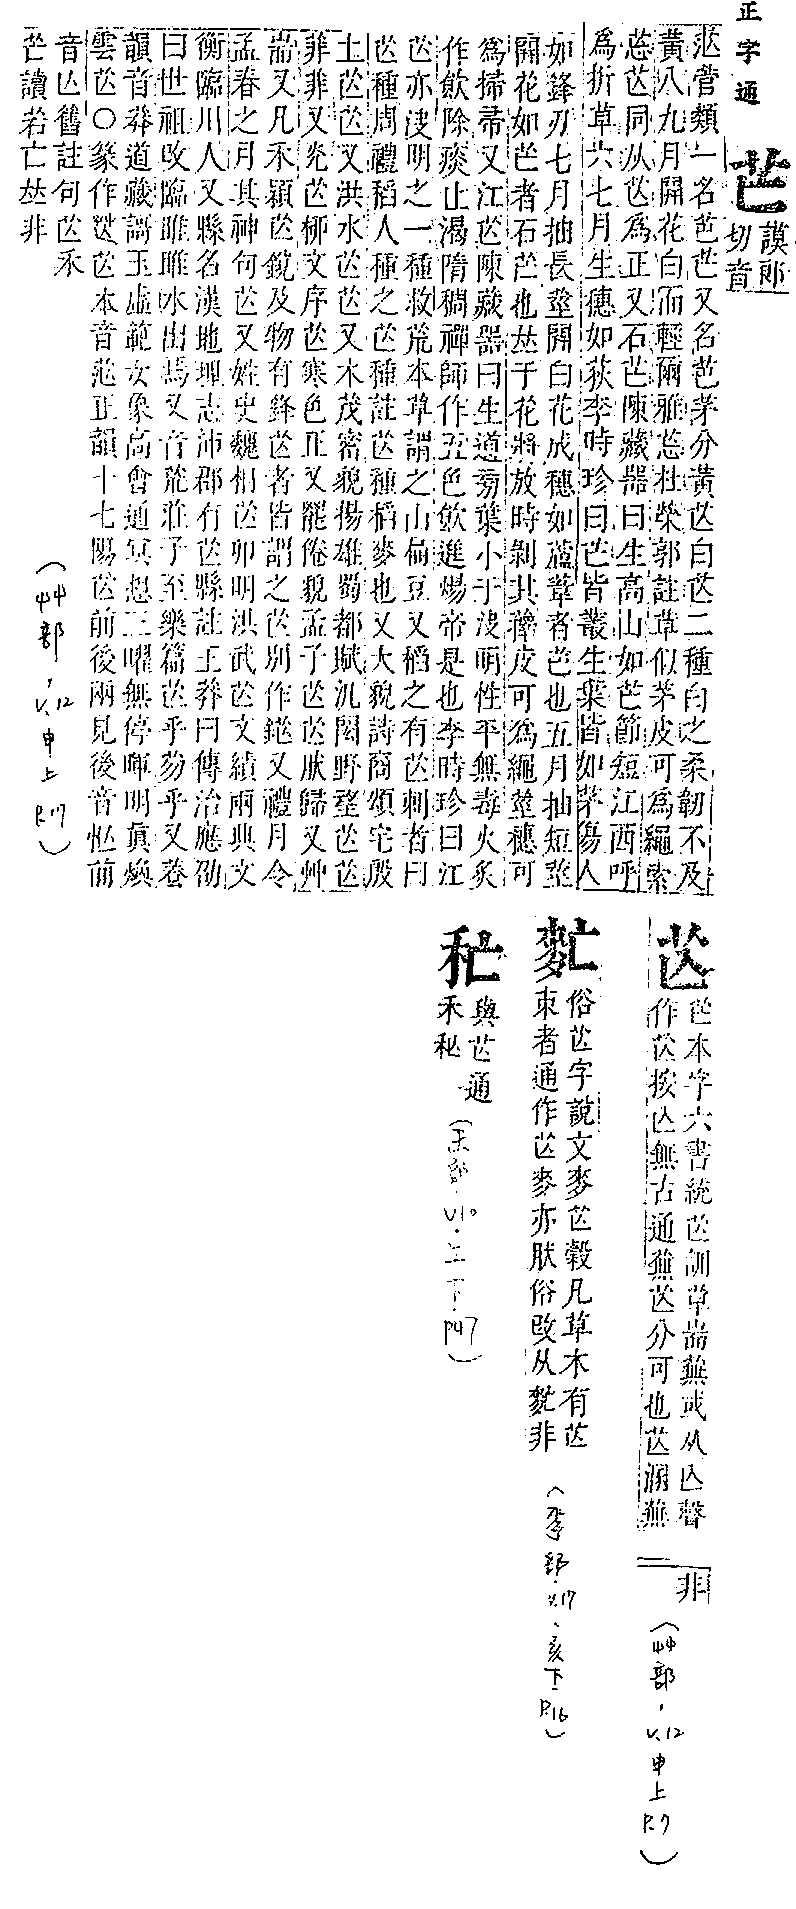 正字通
芒
謨郎
切音
茫菅類一名芭芒又名芭茅分黃芒白芒二種白之柔韌不及
黃八九月開花白而輕爾雅莣杜榮郭註草似茅皮可為繩索
莣芒同从芒為正又石芒陳藏器曰生高山如芒節短江西呼
為折草六七月生穗如荻李時珍曰芒皆叢生葉皆如茅傷人
如鋒刃七月抽長莖開白花成穗如蘆葦者芒也五月抽短莖
開花如芒者石芒也𠀤于花將放時剝其籜皮可為繩莖穗可
為掃帚又江芒陳藏器曰生道旁葉小于決明性平無毒火炙
作飲除痰止渴隋稠禪師作五色飲進煬帝是也李時珍曰江
芒亦決明之一種救荒本草謂之山扁豆又稻之有芒刺者曰
芒種周禮稻人種之芒種註芒種稻麥也又大貌詩商頌宅殷
土芒芒又洪水芒芒又木茂密貌揚雄蜀都賦汎閎野望芒芒
菲菲又光芒柳文序芒寒色正又罷倦貌孟子芒芒肰歸又艸
耑又凡禾穎芒鋭及物有鋒芒者皆謂之芒別作鋩又禮月令
孟春之月其神句芒又姓史魏相芒卯明洪武芒文縝兩典文
衡臨川人又縣名漢地理志沛郡有芒縣註王莽曰傳治應劭
曰世祖改臨睢睢水出焉又音荒莊子至樂篇芒乎芴乎又養
韻音莽道藏謌玉虛範女象高會通冥想三曜無停暉明眞煥
雲芒〇篆作芒芒本音茫正韻十七陽芒前後兩見後音怃前
音亾舊註句芒禾
芒讀若亡𠀤非
(艸部,V.12申上P.17)
芒
芒本字六書統芒訓草耑蕪或从亾聲
作芒按亾無古通蕪芒分可也芒溷蕪
非
(艸部,V.12申上P.7)
䴏
俗芒字說文麥芒穀凡草木有芒
朿者通作芒麥亦肰俗改从䴏非
(麥部,V.17、亥下P.16)
秐
與芒通
禾秘
(禾部V10.午下.P47)